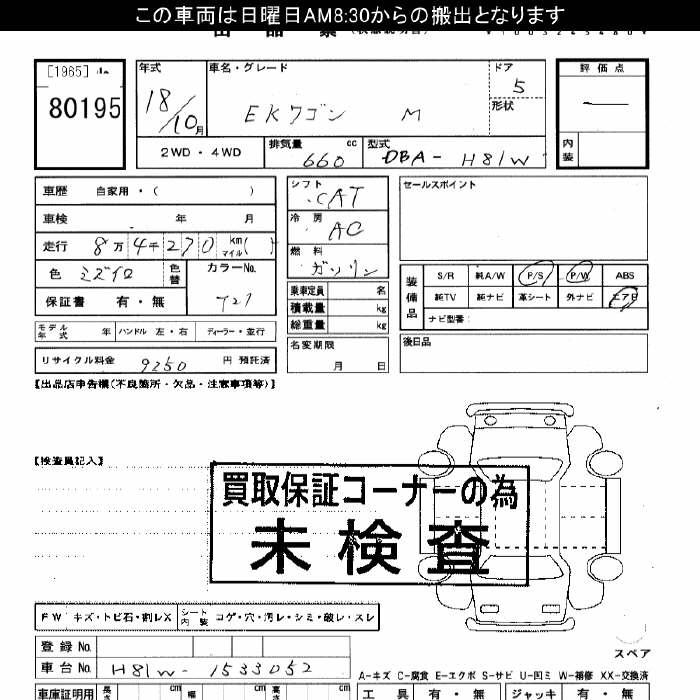 この車両は日曜日AM8:30からの搬出となります
[1965]
80195
年式
18/10月
車名・グレード
EKワゴン M
ドア
5
形状
評価点
内装
2WD・4WD
排気量 660 cc
型式 DBA-H81W
車歴 自家用・( )
車検 年 月
走行 8万4千270 km マイル( )
色 ミズイロ 色替
カラーNo.
T27
保証書 有・無
シフト
CAT
冷房
AC
燃料
ガソリン
乗車定員 名
積載量 kg
総重量 kg
セールスポイント
装備品
S/R 純A/W P/S P/W ABS
純TV 純ナビ 革シート 外ナビ エアB
ナビ型番:
モデル年式 年 ハンドル 左・右 ディーラー・並行
リサイクル料金 9250 円 預託済
名変期限
月 日
後日品
【出品店申告欄(不良箇所・欠品・注意事項等)】
【検査員記入】
買取保証コーナーの為
未検査
FW キズ・トビ石・割レX
シート内装 コゲ・穴・汚レ・シミ・破レ・スレ
スペア
登録No.
車台No. H81W-1533052
A-キズ C-腐食 E-エクボ S-サビ U-凹ミ W-補修 XX-交換済
車庫証明用 長さ cm 幅 cm 高さ cm
工具 有・無 ジャッキ 有・無